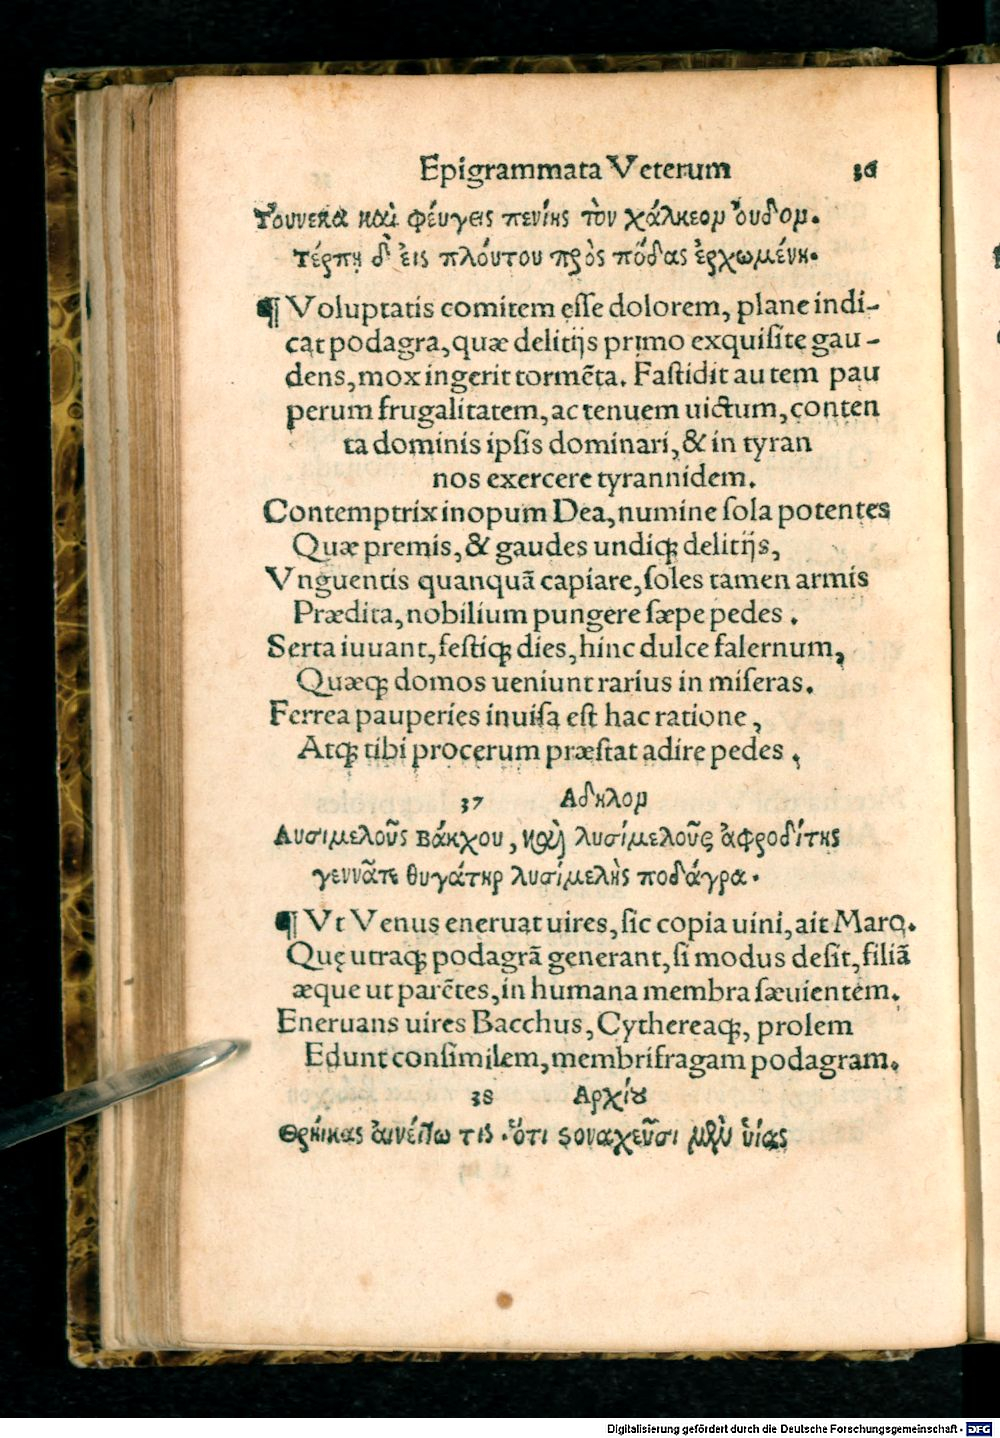 Epigrammata Veterum 36
Τούνεκα καὶ φέυγεις πενίης τὸν χάλκεον ὀυδόν.
Τέρπῃ δ' ἐις πλόυτου πρὸς πόδας ἐρχωμένη.
¶ Voluptatis comitem esse dolorem, plane indi-
cat podagra, quæ delitijs primo exquisite gau-
dens, mox ingerit tormẽta. Fastidit autem pau
perum frugalitatem, ac tenuem uictum, conten
ta dominis ipsis dominari, & in tyran
nos exercere tyrannidem.
Contemptrix inopum Dea, numine sola potentes
Quæ premis, & gaudes undiqꝫ delitijs,
Vnguentis quanquã capiare, soles tamen armis
Prædita, nobilium pungere sæpe pedes.
Serta iuuant, festiqꝫ dies, hinc dulce falernum,
Quæqꝫ domos ueniunt rarius in miseras.
Ferrea pauperies inuisa est hac ratione,
Atqꝫ tibi procerum præstat adire pedes.
37 Αδηλον
Λυσιμελοῦς βάκχου, καὶ λυσίμελοῦς ἀφροδίτης
γεννᾶτε θυγάτηρ λυσίμελὴς ποδάγρα.
¶ Vt Venus eneruat uires, sic copia uini, ait Maro.
Quę utraqꝫ podagrã generant, si modus desit, filiã
æque ut parẽtes, in humana membra sæuientem.
Eneruans uires Bacchus, Cythereaqꝫ, prolem
Edunt consimilem, membrifragam podagram.
38 Αρχίου
Θρήικας ἀινέιτω τις ὅτι στοναχεῦσι μὲν ὑίας